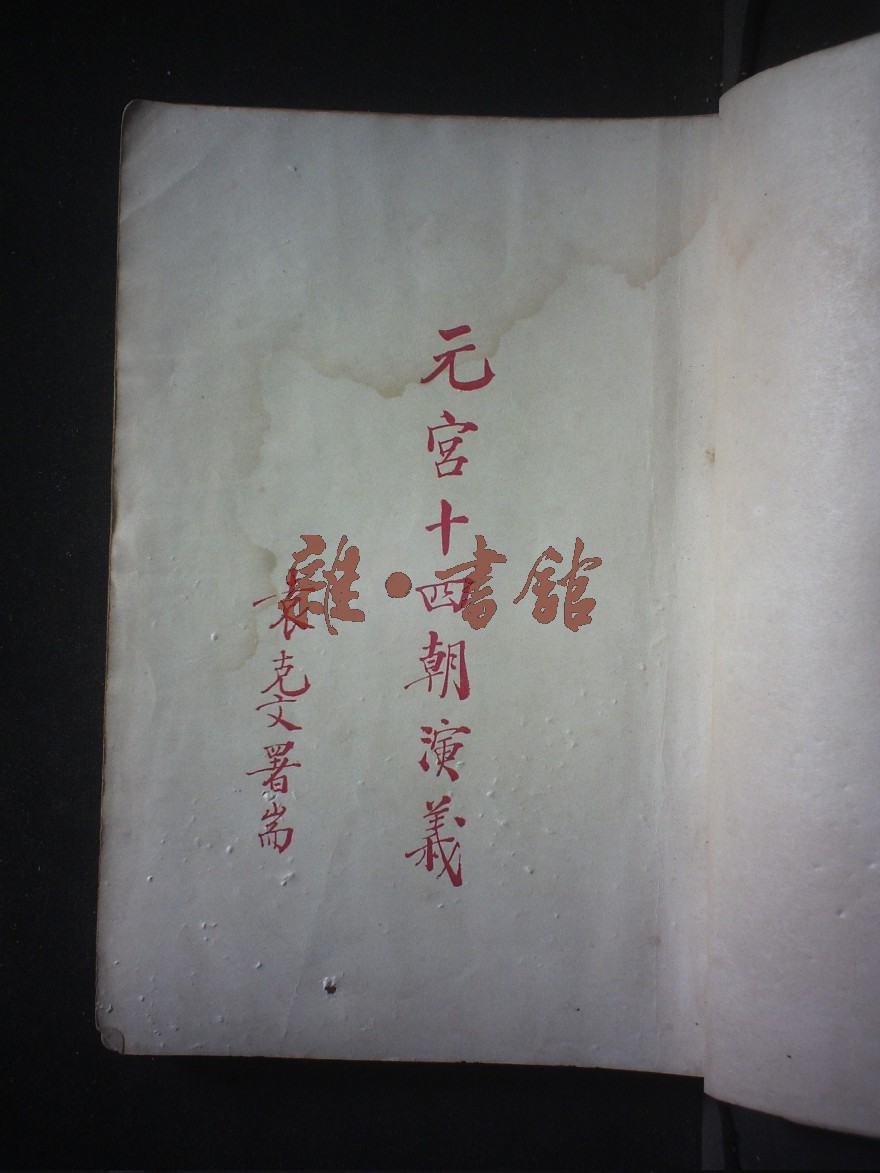 元宮十四朝演義
袁克文署耑
雜·書館